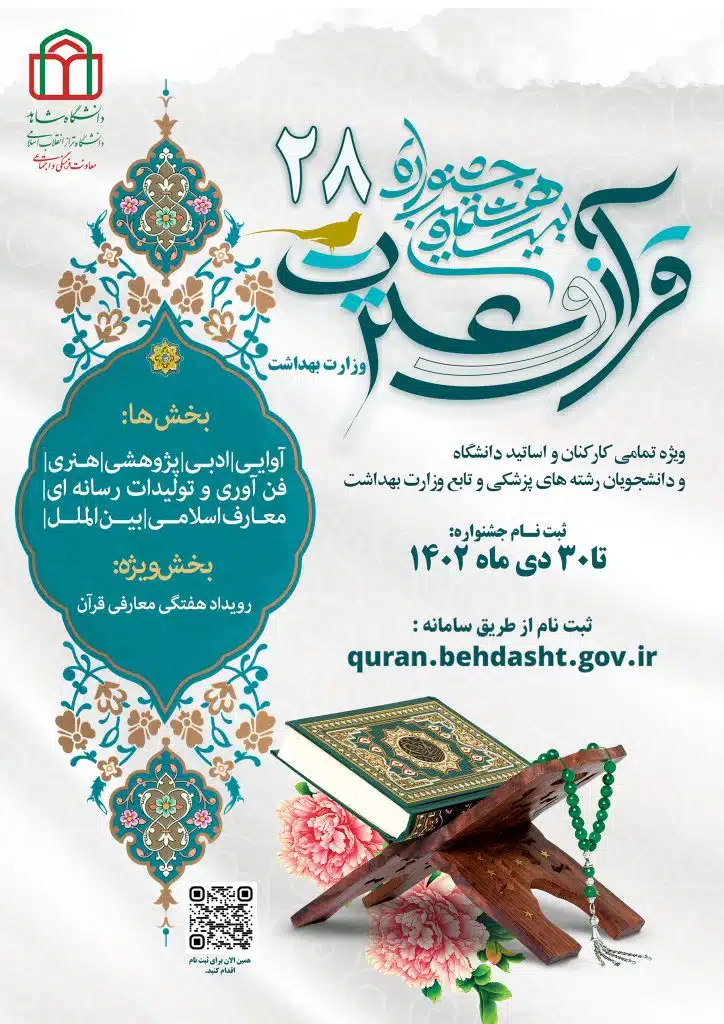 دانشگاه شاهد
دانشگاه تراز انقلاب اسلامی
معاونت فرهنگی و اجتماعی
۲۸
بیست و هشتمین جشنواره
قرآن و عترت
وزارت بهداشت
بخش ها:
آوایی|ادبی|پژوهشی|هنری|
فن آوری و تولیدات رسانه ای|
معارف اسلامی|بین الملل|
بخش ویژه:
رویداد هفتگی معارفی قرآن
ویژه تمامی کارکنان و اساتید دانشگاه
و دانشجویان رشته های پزشکی و تابع وزارت بهداشت
ثبت نام جشنواره:
تا ۳۰ دی ماه ۱۴۰۲
ثبت نام از طریق سامانه :
quran.behdasht.gov.ir
همین الان برای ثبت نام
اقدام کنید.